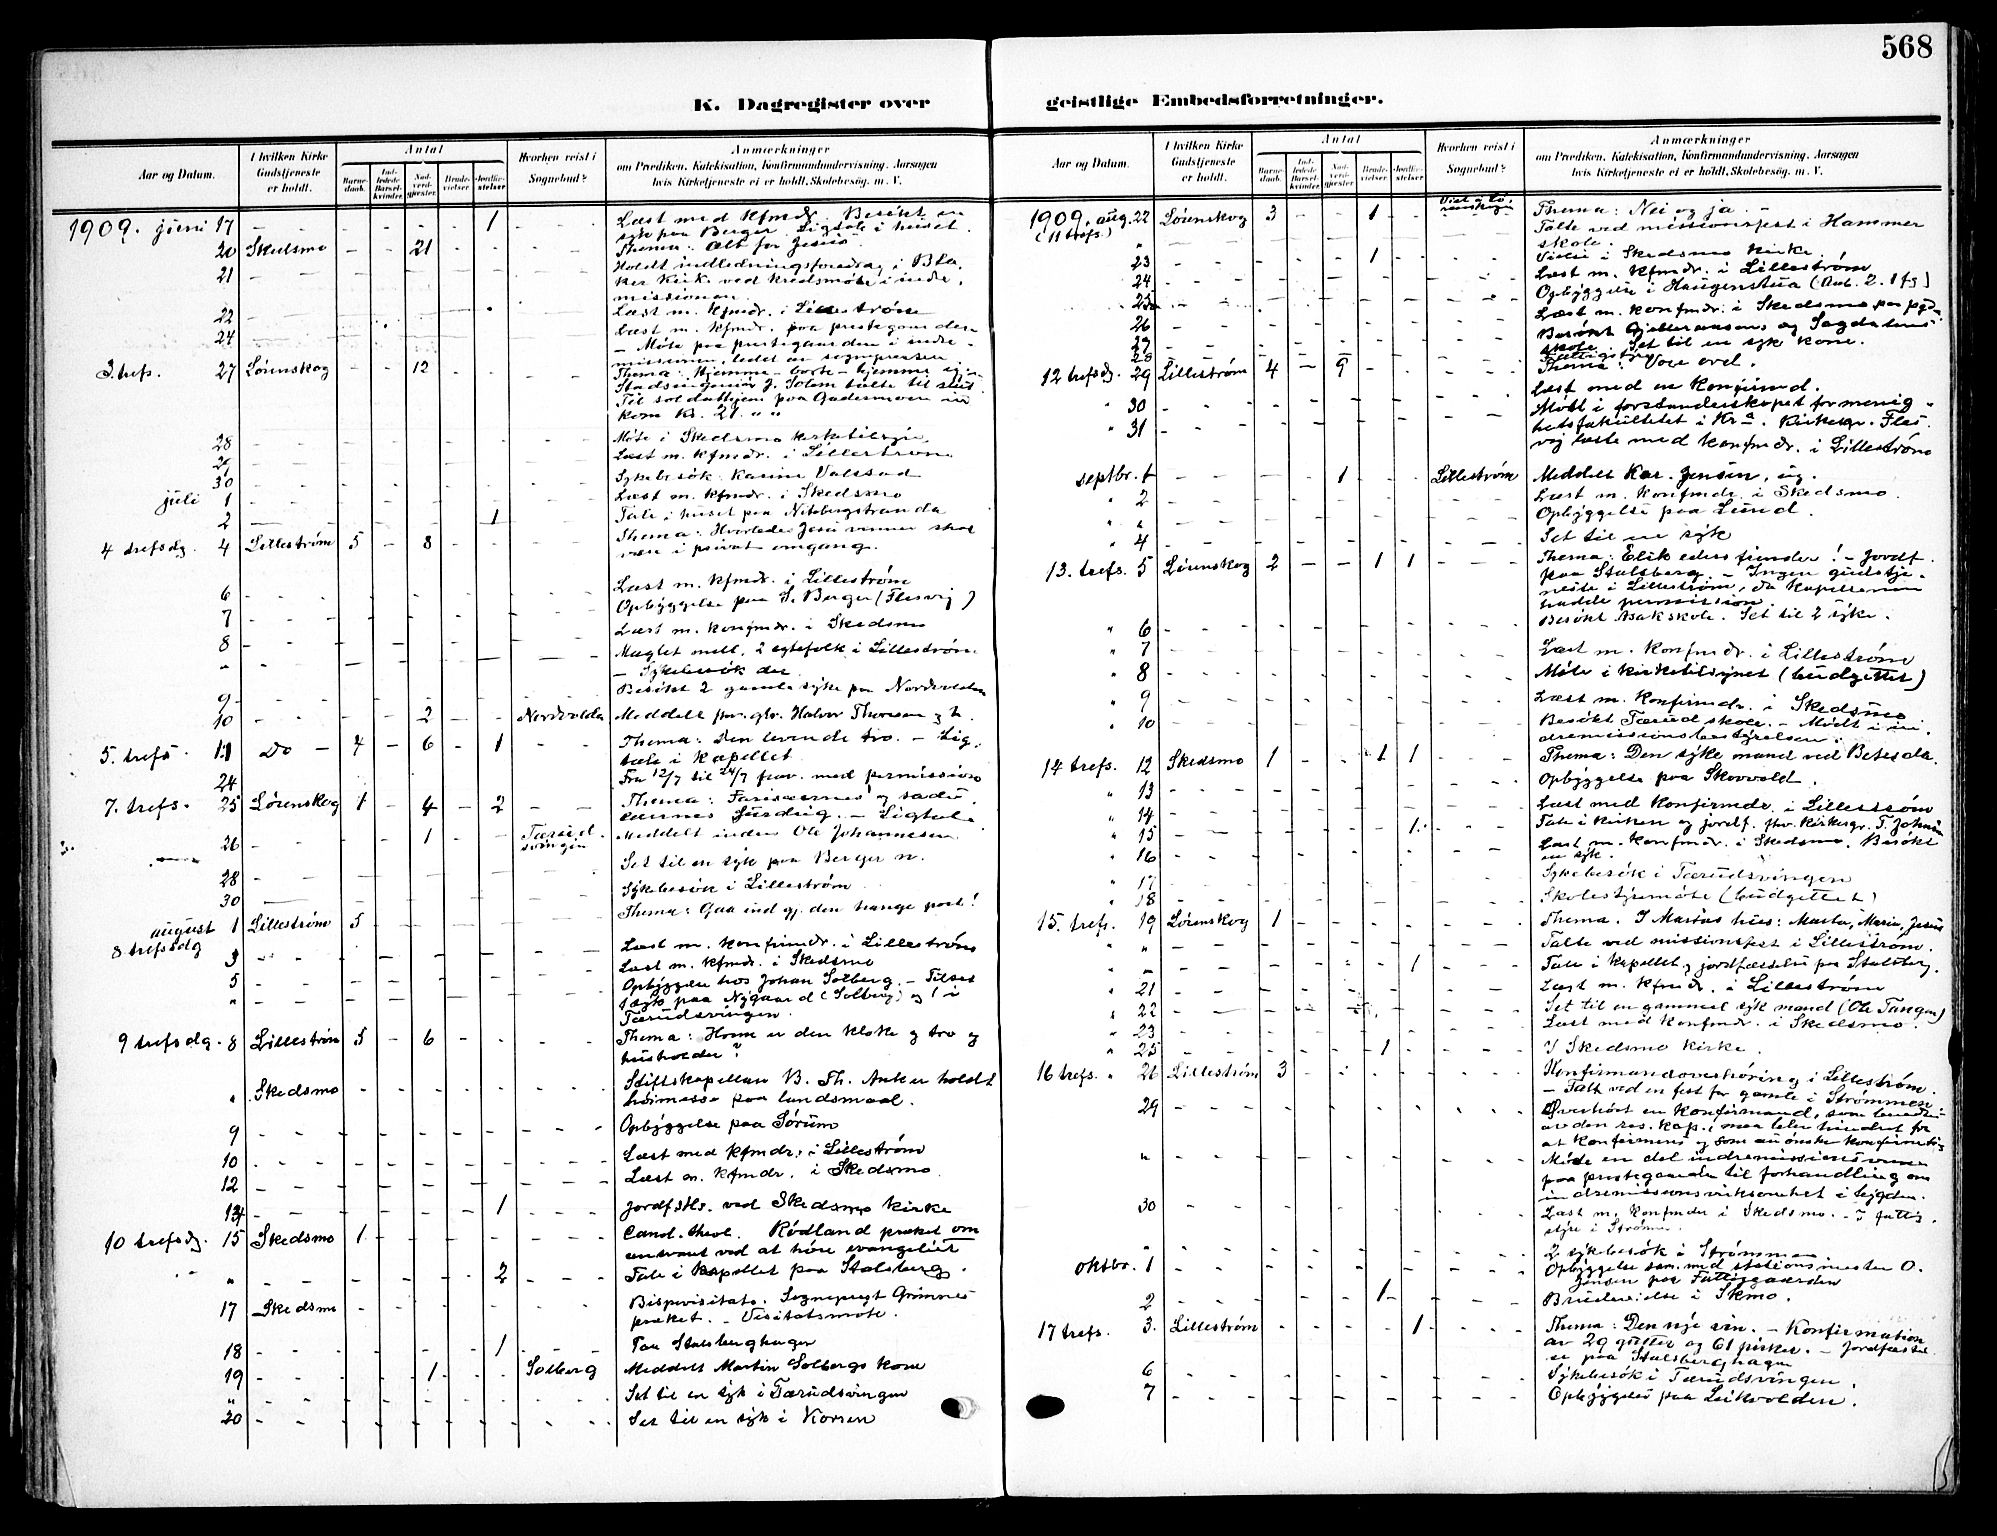 568
K. Dagregister over
Aar og Datum. I hvilken Kirke Gudstjeneste er holdt. Antal Barnedaab. Indledede Barselkvinder Nadverdgjester Brudevielser Jordfæstelser Hvorhen reist i Sognebud? Anmærkninger om Prædiken, Katekisation, Konfirmandundervisning, Aarsagen hvis Kirketjeneste ei er holdt, Skolebesøg m. V.
1909. juni 17 - - - - - 1 Læst med kfmdr. Besökt en
syk paa Berger. Ligtale i huset.
20 Skedsmo - - 21 Thema: Alt for Jesus
21 Holdt indledningsforedrag i Bla
ker Kirk. ved kredsmöte i indre
missionen.
22 Læst m. kfmdr. i Lilleström
24 Læst m. kfmdr. paa prestegaarden
- Möte paa prestegaarden i indre
missionen, ledet av sognepresten.
3. trefs. 27 Lörenskog - - 12 Thema: Hjemme - borte - hjemme igj.
Stadsingeniör J. Solem talte til slut
Til soldathjem paa Gardermoen ind
kom Kr. 21. " "
28 Möte i Skedsmo kirketilsyn
Læst m. kfmdr. i Lilleström
30 Sykebesök: Karine Valstad
juli 1 Læst m. kfmdr. i Skedsmo
2 1 Tale i huset paa Nitebergstranda
4 trefsdg. 4 Lilleström 5 - 8 Thema: Hvorledes Jesu venner skal
være i privat omgang.
Læst m. kfmdr. i Lilleström
6 Opbyggelse paa S. Berger (Flesvij)
7 Læst m. konfmdr. i Skedsmo
8 Mæglet mell. 2 egtefolk i Lilleström
" - Sykebesök der
9 Besökt 2 gamle syke paa Nordvolden
10 - - 2 - - Nordvolda Meddelt fhv. gbr. Halvor Thoresen og h.
5. trefs. 11 Do - 4 - 6 - 1 Thema: Den levende tro. - Lig
tale i kapellet
24 Fra 12/7 til 24/7 frav. med permission
7. trefs. 25 Lörenskog 1 - 4 - 2 Thema: Farisæernes og sadu
cæernes surdeig. - Ligtale
26 1 Tærud svingen Meddelt inden Ole Johannesen
Set til en syk paa Berger n.
28 Sykebesök i Lilleström
30
august 1 Lilleström 5 Thema: Gaa ind gj. den trange port!
8 trefsdg
3 Læst m. konfirmdr. i Lilleström
5 Læst m. kfmdr. i Skedsmo
" Opbyggelse hos Johan Solberg. - Tilset
1 syk paa Nygaard (Solberg) og 1 i
Tærudsvingen.
9 trefsdg. 8 Lilleström 5 - 6 Thema: Hvem er den kloke og tro og
husholder?
" Skedsmo Stiftskapellan B. Th. Anker holdt
höimesse paa landsmaal.
9 Opbyggelse paa Sörum
10 Læst med kfmdr. i Lilleström
12 Læst m. kfmdr. i Skedsmo
14 1 Jordfstls. ved Skedsmo kirke
10 trefsdg. 15 Skedsmo 1 Cand. theol. Rödland præket om
ansvaret ved at höre evangeliet
" 2 Tale i kapellet paa Stalsberg.
17 Skedsmo Bispevisitats. Sogneprest Grimnes
præket. - Visitatsmöte.
18 1 Paa Stalsberghagen
19 1 Solberg Meddelt Martin Solbergs kone
" Set til en syk i Tærudsvingen
20 Set til en syk i Korsen
geistlige Embedsforretninger.
Aar og Datum. I hvilken Kirke Gudstjeneste er holdt. Antal Barnedaab. Indledede Barselkvinder Nadverdgjester Brudevielser Jordfæstelser Hvorhen reist i Sognebud? Anmærkninger om Prædiken, Katekisation, Konfirmandundervisning, Aarsagen hvis Kirketjeneste ei er holdt, Skolebesøg m. V.
1909. aug. 22 Lörenskog 3 - - 1 - Thema: Nei og ja. -
(11 trefs.) Talte ved missionsfest i Hammer
skole.
23 1 Vielse i Skedsmo kirke
24 Læst m. kfmdr. i Lilleström
Opbyggelse i Haugenstua
25 Læst m. konfmdr. i Skedsmo
26 Besökt Gjelleraasens og Sagdalens
27 skole. Set til en syk kone.
28 Fattigstyre
12 trefsdg. 29 Lilleström 4 - 9 Thema: Vore ord.
30 Læst med en konfirmd.
" 31 Mött i forstanderskapet for menig
hetsfakultetet i Kr.a. Kirkesgr. Fles
vig læste med konfmdr. i Lilleström
septbr. 1 1 Lilleström Meddelt Kar. Jensen, ug.
" 2 Læst m. konfmdr. i Skedsmo
" " Opbyggelse paa Lund.
" 4 Set til en syk
13. trefs. 5 Lörenskog 2 - - 1 1 Thema: Elsk eders fiender! - Jordf.
paa Stalsberg. - Ingen gudstje
neste i Lilleström, da kapellanen
hadde permission
" 6 Besökt Asakskole. Set til 2 syke.
" 7 Læst m. konfmdr. i Lilleström
" 8 Möte i kirketilsynet (budgettet)
" 9 Læst m. konfirmdr. i Skedsmo
" 10 Besökt Tærud skole. - Mödt i in
dremissionsbestyrelsen.
14 trefs. 12 Skedsmo 1 - - 1 1 Thema: Den syke mand ved Betesda.
" 13 Opbyggelse paa Skovvold.
" 14 Læst med konfirmdr. i Lilleström
" 15 1 Tale i kirken og jordf. fhv. kirkesgr. T. Johnsen
" 16 Læst m. konfmdr. i Skedsmo. Besökt
en syk.
" 17 Sykebesök i Tærudsvingen
" 18 Skolestyremöte (budgettet)
15. trefs. 19 Lörenskog 1 Thema. I Martas hus: Marta, Maria, Jesus
" " Talte ved missionsfest i Lilleström.
" - 1 Tale i kapellet og jordfæstelse paa Stalsberg.
" 21 Læst m. kfmdr. i Lilleström
" 22 Set til en gammel syk mand (Ole Tangen)
" 23 Læst med konfmdr. i Skedsmo.
" 25 1 I Skedsmo kirke.
16 trefs. " 26 Lilleström 3 Konfirmandoverhöring i Lilleström.
- Talt ved en fest for gamle i Strömmen
29 Overhört en konfirmand, som
av den res. kap. maa blev hindret for
at konfirmeres og som
" Möte en del indremissionsvenner
paa prestegaarden til forhandling om
indremissionsvirksomhet i bygden.
30 Læst m. konfmdr i Skedsmo. - I fattig
styre i Ströme.
" 2 sykebesök i Strömmen
oktbr. 1 Opbyggelse sm. med stationsmester O.
Jensen paa Fattiggaarden
2 1 Brudevielse i Skmo.
17 trefs. 3. Lilleström 1 Thema: Den nye vin. - Konfirmation
av 29 gutter og 61 piker. - Jordfæstel
se paa Stalsberghagen
6 Sykebesök i Tærudsvingen.
7 Opbyggelse paa Leikvolden.